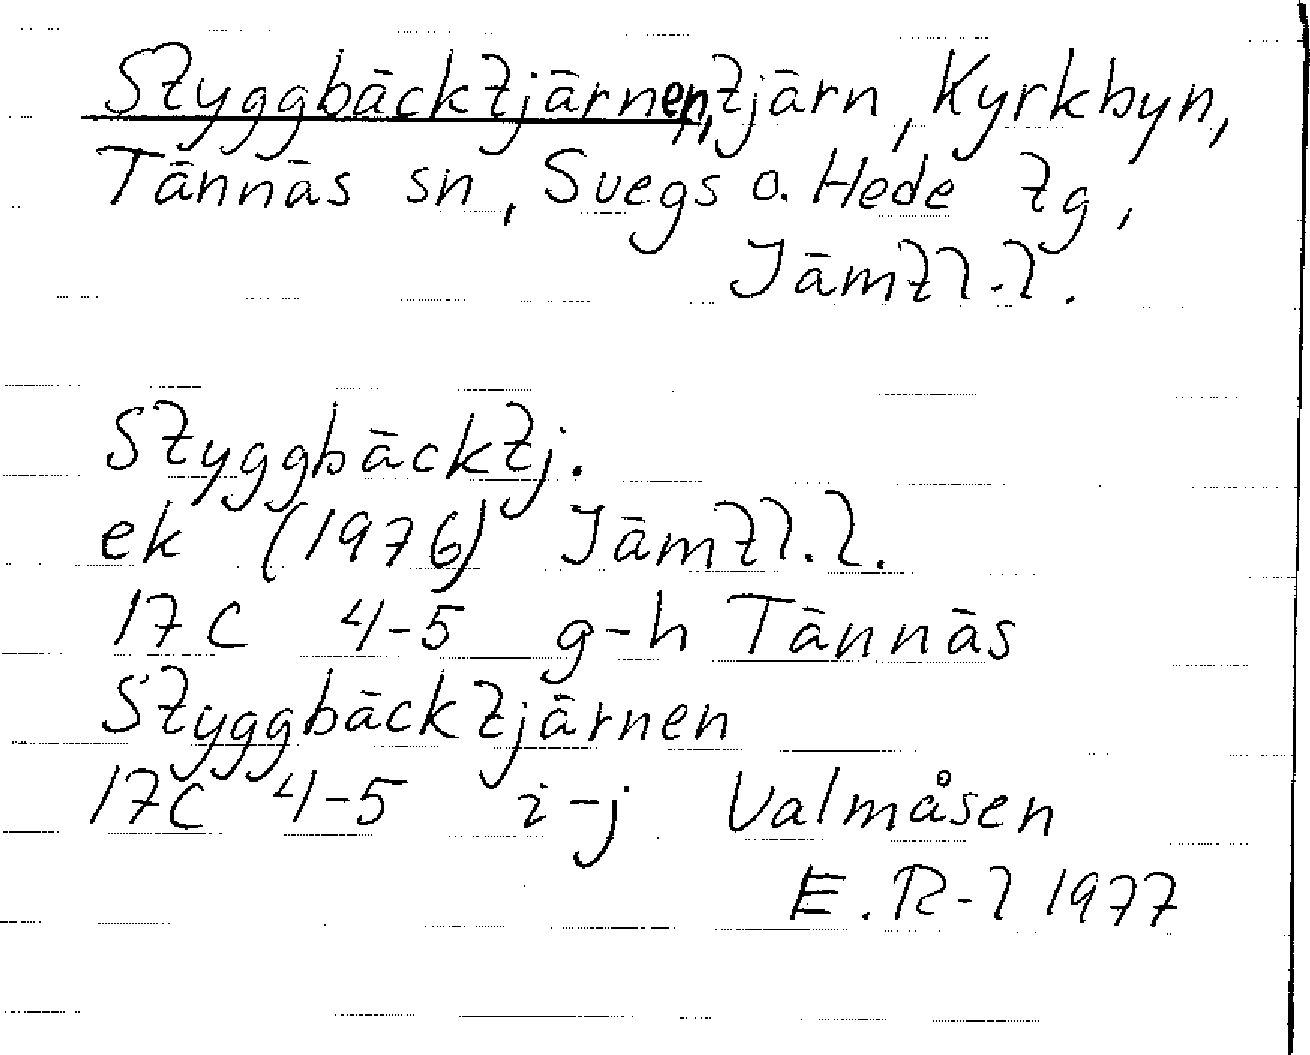 Styggbäcktjärnen, tjärn, Kyrkbyn,
Tännäs sn, Svegs o. Hede tg,
Jämtl.l.
Styggbäcktj.
ek (1976) Jämtl.l.
17C 4-5 g-h Tännäs
Styggbäcktjärnen
17C 4-5 i-j Valmåsen
E.R-l 1977